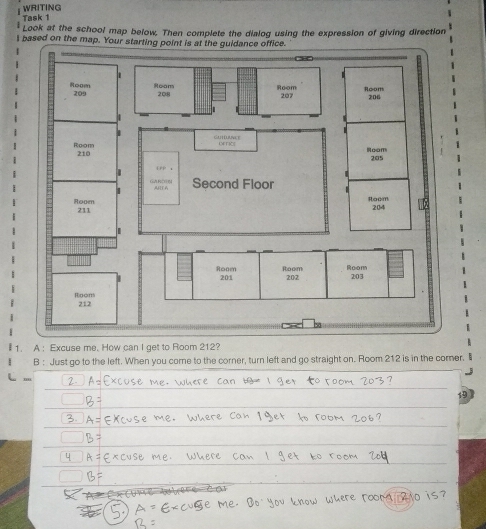 WRITING
Task 1
Look at the school map below, Then complete the dialog using the expression of giving direction
based on the map. Your starting point is at the guidance office.
Room
209
Room
208
Room
207
Room
206
GUIDANCE
OFFICE
Room
210
Room
205
EPP
GARDEN
AREA
Second Floor
Room
211
Room
204
Room
201
Room
202
Room
203
Room
212
1. A : Excuse me, How can I get to Room 212?
B : Just go to the left. When you come to the corner, turn left and go straight on. Room 212 is in the corner.
2. A= Excuse me. where can I get to room 203?
B=
3. A= Excuse me. Where can I get to room 206?
B=
4 A= Excuse me. Where can I get to room 204
B=
5. A = Excuse me. Do you know where room 210 is?
B=